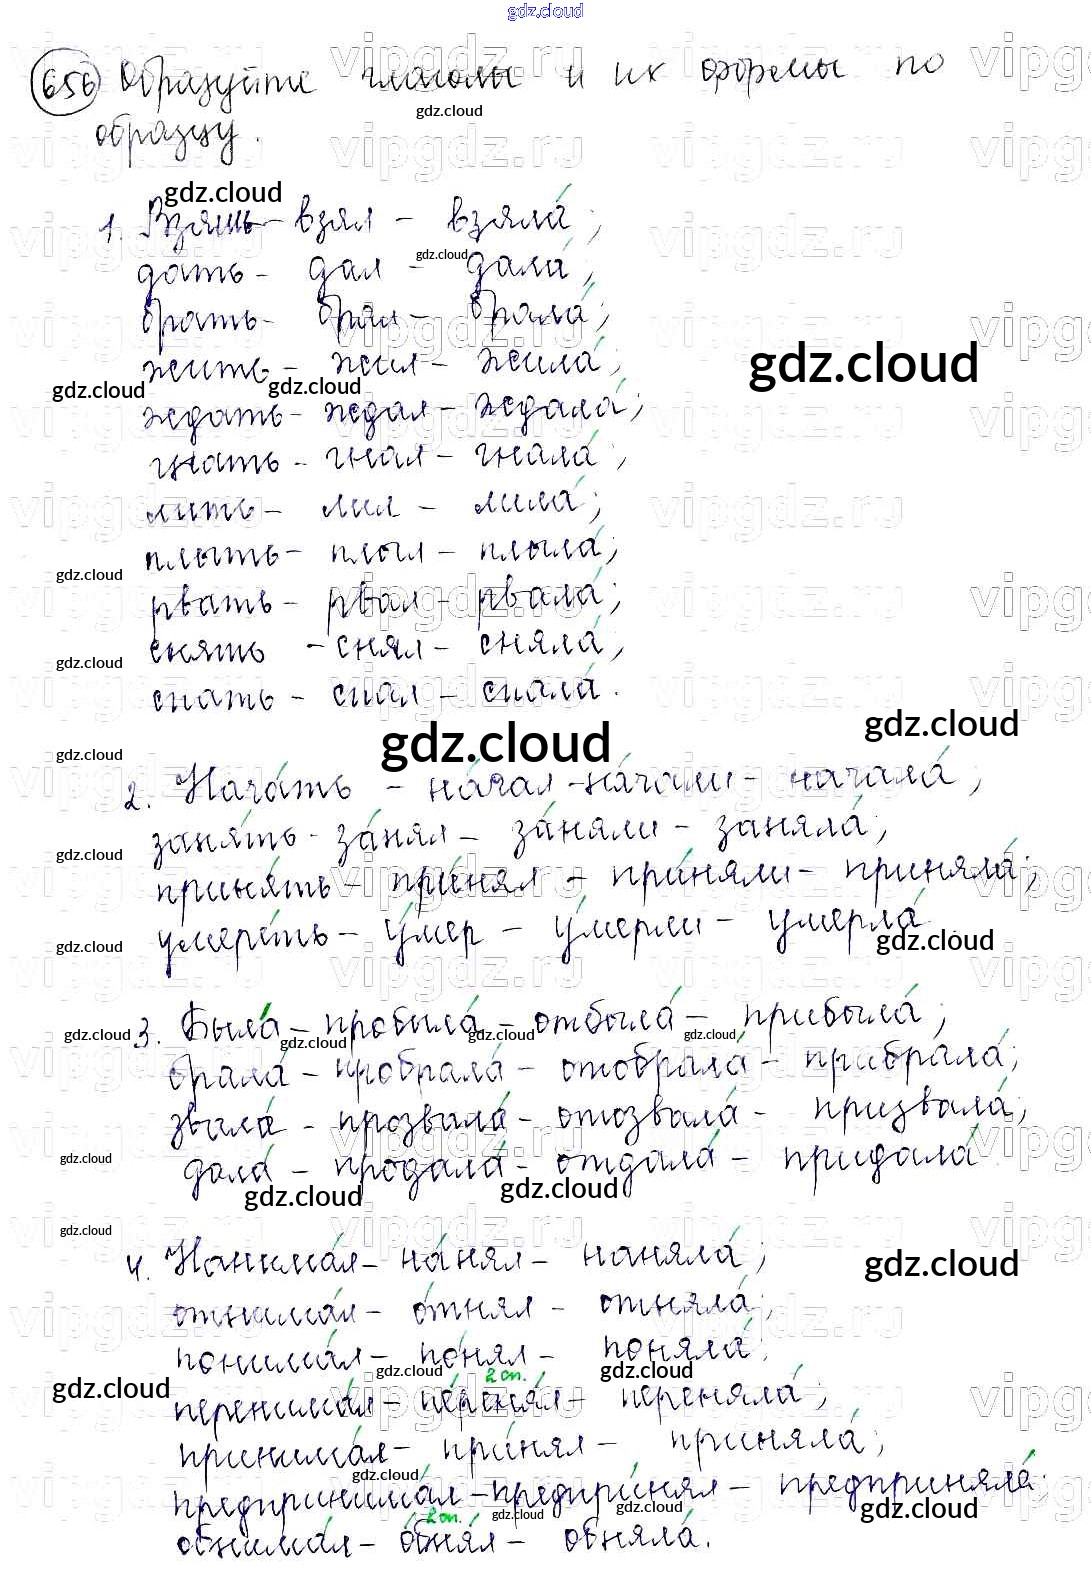 gdz.cloud
656 Образуйте глаголы и их формы по
образцу.
1. Взять - взял - взяла́;
дать - дал - дала́;
брать - брал - брала́;
жить - жил - жила́;
ждать - ждал - ждала́;
гнать - гнал - гнала́;
лить - лил - лила́;
плыть - плыл - плыла́;
рвать - рвал - рвала́;
снять - снял - сняла́;
спать - спал - спала́.
2. Нача́ть - на́чал - на́чали - начала́;
заня́ть - за́нял - за́няли - заняла́;
приня́ть - при́нял - при́няли - приняла́;
умере́ть - у́мер - у́мерли - умерла́
3. Была́ - пробыла́ - отбыла́ - прибыла́;
брала́ - пробрала́ - отобрала́ - прибрала́;
звала́ - прозвала́ - отозвала́ - призвала́;
дала́ - продала́ - отдала́ - придала́
4. Нанима́л - на́нял - наняла́;
отнима́л - о́тнял - отняла́;
понима́л - по́нял - поняла́;
2 сп.
перенима́л - пе́реня́л - переняла́;
принима́л - при́нял - приняла́;
предпринима́л - предпри́нял - предприняла́;
2 сп.
обнима́л - о́бня́л - обняла́.